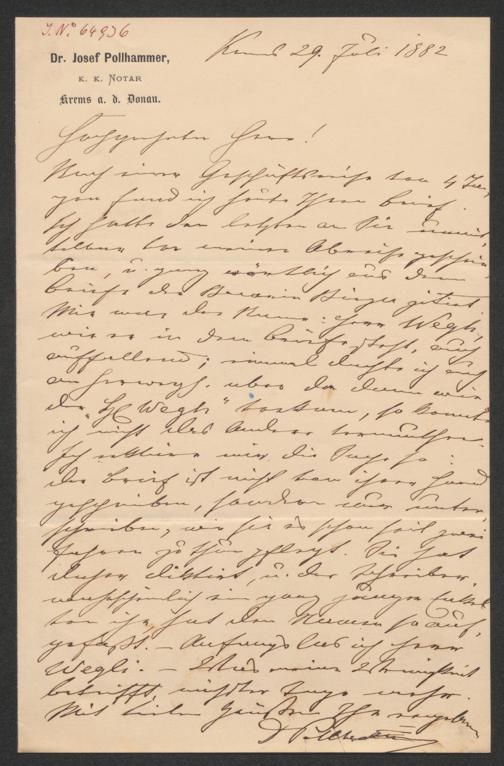 J. N° 64936
Dr. Josef Pollhammer,
K. K. NOTAR
Krems a. d. Donau.
Krems 29. Juli 1882
Hochgeehrter Herr!
Nach einer Geschäftsreise von 4 Ta-
gen fand ich heute Ihren Brief.
Ich hatte den letzten an Sie unmit-
telbar vor meiner Abreise geschrie-
ben, u. ganz wörtlich aus dem
Briefe der Baronin zitirt
Mir war der Name: Herr Wegli,
wie er in dem Briefe steht, auch
auffallend; einmal dachte ich auch
an aber da dann wie-
der "H Wegli" vorkam, so konnte
ich nicht das Andere vermuthen.
Ich erkläre mir die Sache so:
der Brief ist nicht von ihrer Hand
geschrieben, sondern nur unter-
schrieben, wie sie es schon seit zwei
Jahren zu thun pflegt. Sie hat
daher diktirt, u. der Schreiber,
wahrscheinlich ein ganz junger
von ihr hat den Namen so auf-
gefaßt. – Anfangs las ich Herr
Wegli. – Was meine Wenigkeit
betrifft,
Mit Ihr ergebener
Pollhammer